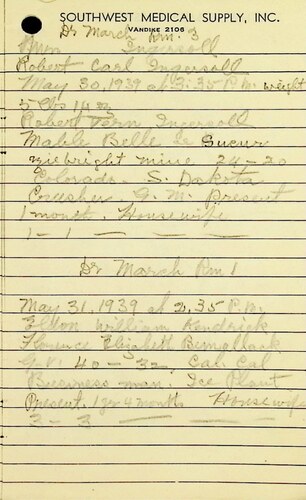 SOUTHWEST MEDICAL SUPPLY, INC.
VANDIKE 2106
Dr March Rm. 3
Ingersoll
Robert Carl Ingersoll
May 30, 1939 at 3:35 P.M. weight
5 lbs 14 oz
Robert Vern Ingersoll
Mable Belle Le Sueur
bright mine 24-20
Colorado - S. Dakota
Crusher G. M. Present
1 month. Housewife
1 - 1 - - -
Dr March Rm 1
May 31, 1939 at 2.35 P.M.
William Kendrick
Florence Elizabeth
40 - 32, Cal. Cal
Business man. Ice Plant
Present. 1 yr 4 months Housewife
3 - 3 - - -